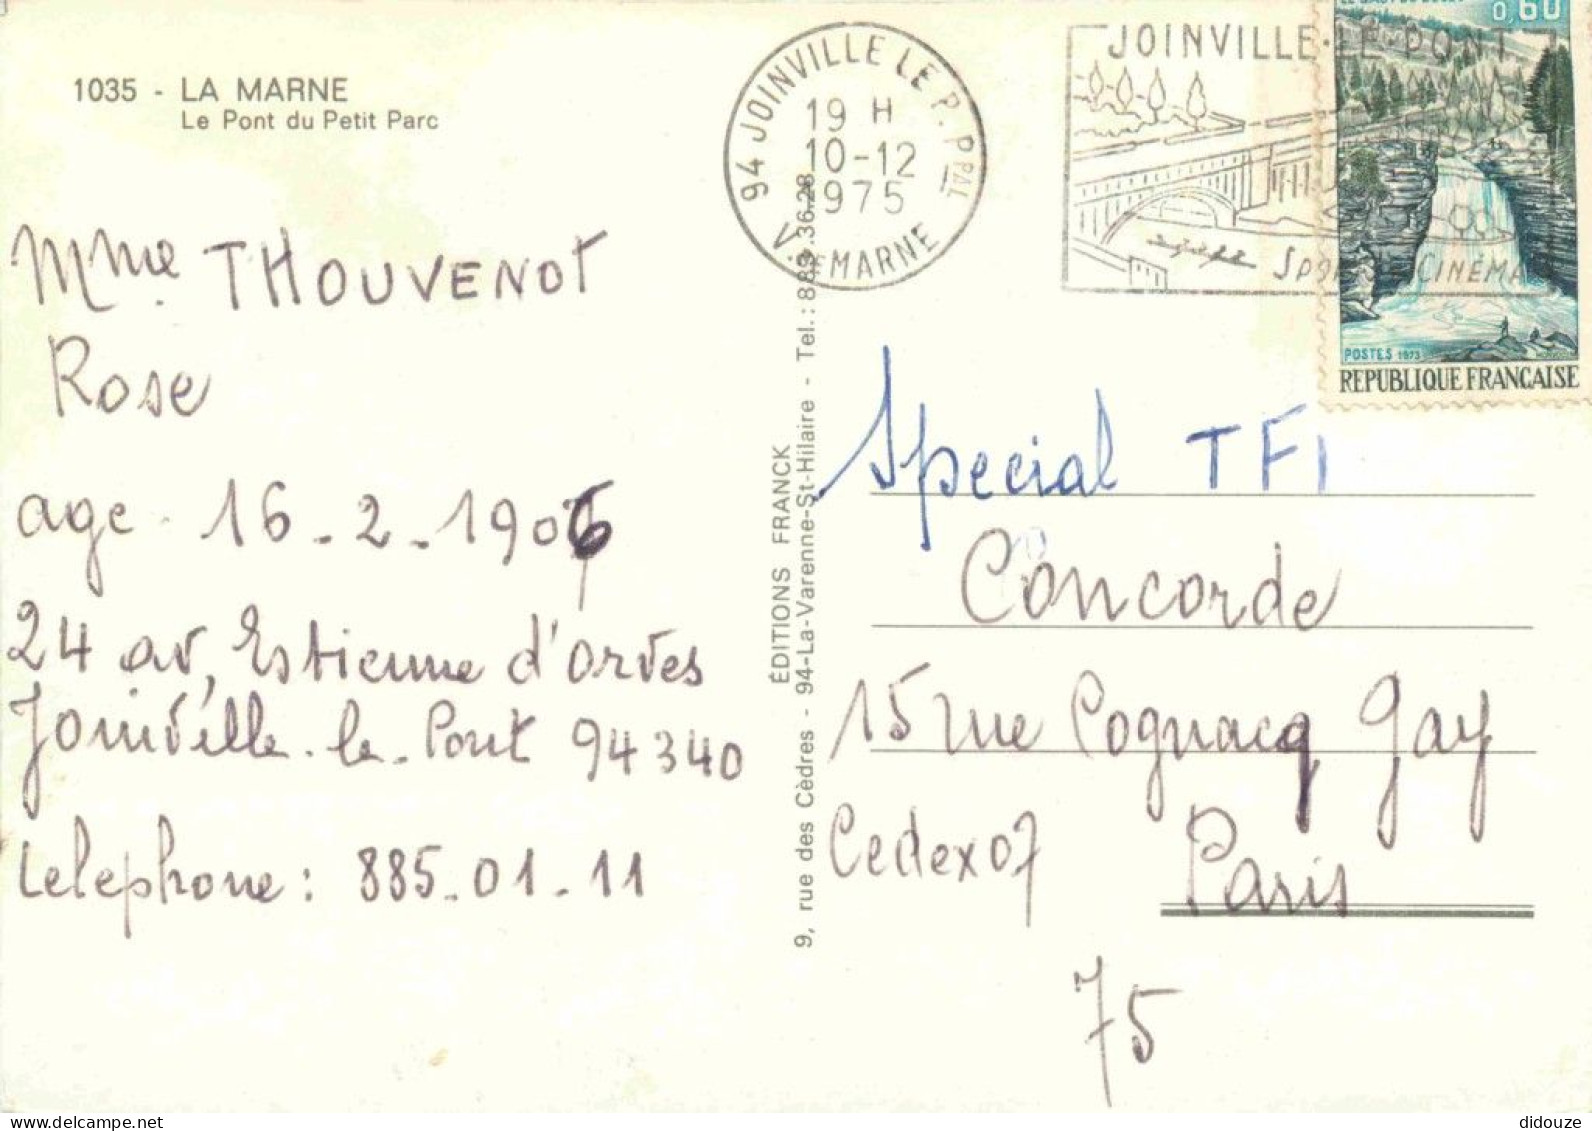 1035 - LA MARNE
Le Pont du Petit Parc
Mme THOUVENOT
Rose
age - 16-2-1906
24 av, Estienne d'Orves
Joinville-le-Pont 94340
telephone : 885-01-11
ÉDITIONS FRANCK
9, rue des Cèdres - 94-La-Varenne-St-Hilaire - Tel. : 883.36.28
94 JOINVILLE LE P. PPAL
19 H
10-12
1975
V. DE MARNE
JOINVILLE-LE-PONT
CINÉMA
0,60
POSTES 1973
REPUBLIQUE FRANCAISE
Special TF1
Concorde
15 rue Cognacq Gay
Cedex 07 Paris
75
delcampe.net
didouze